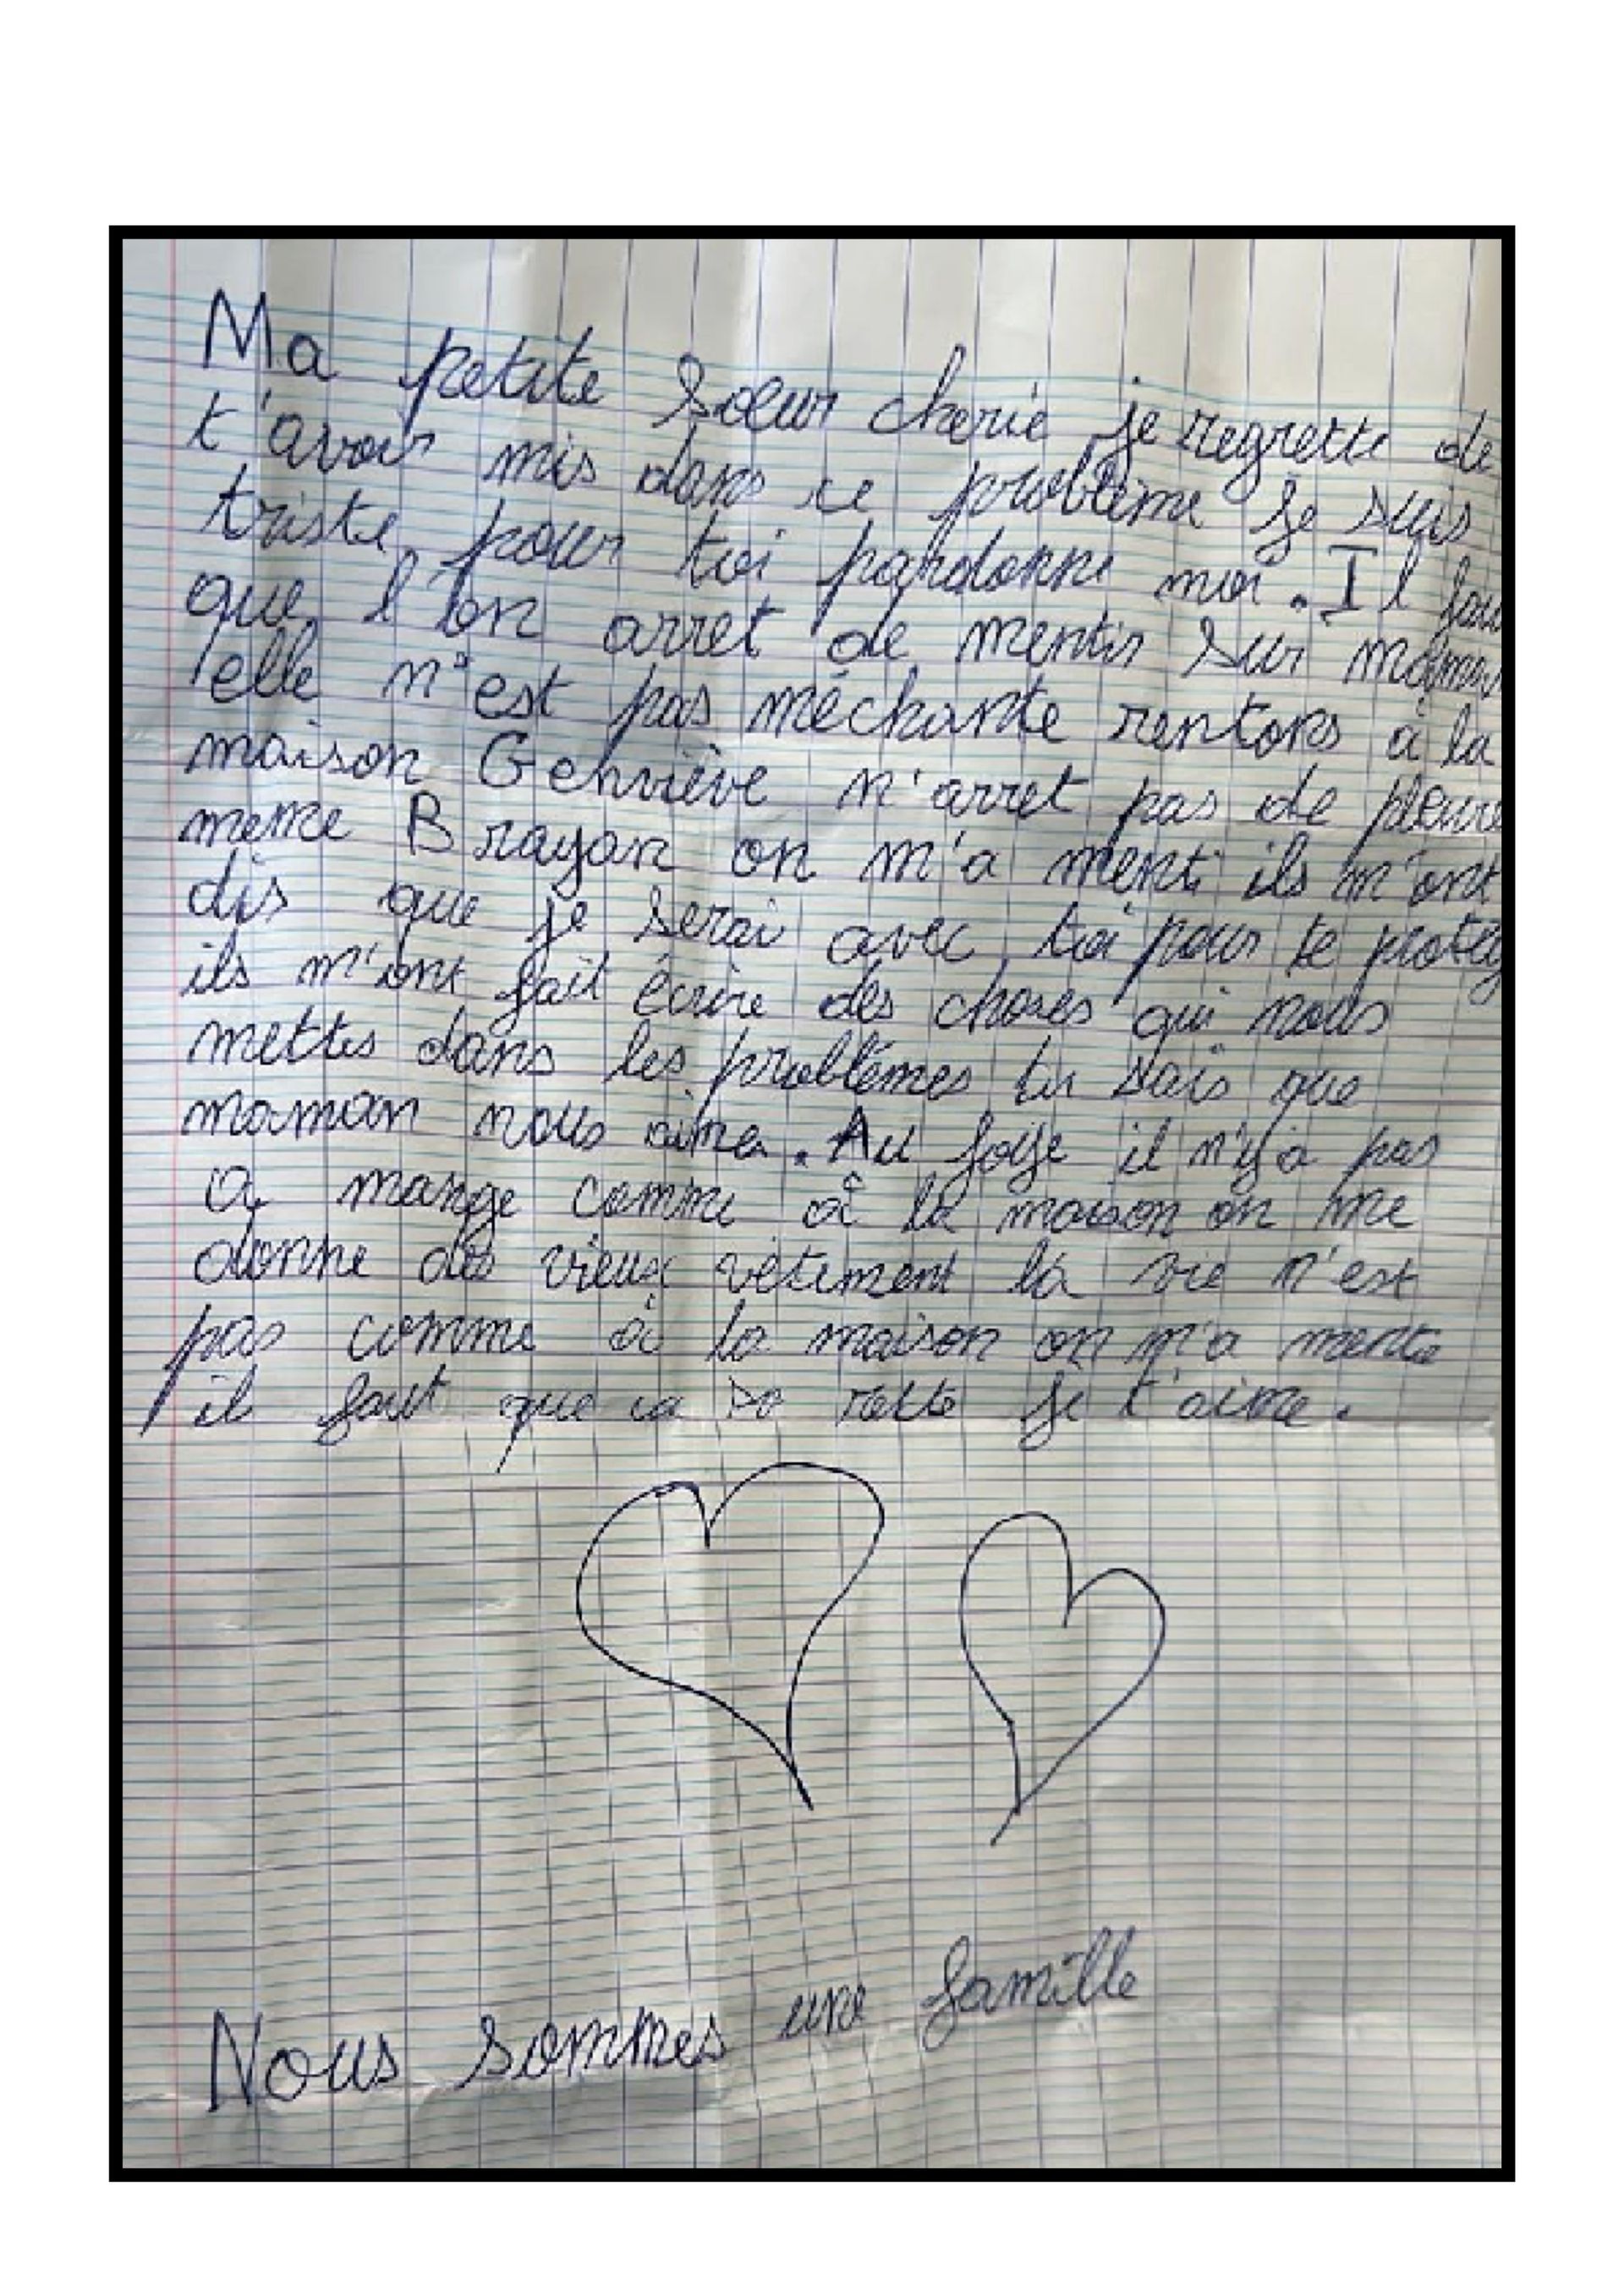 Ma petite soeur cherie je regrette de
t'avoir mis dans ce problème je suis
triste pour toi pardonne moi. Il
que l'on arret de mentir sur
elle n'est pas méchante rentons à la
maison Genviève n'arret pas de
meme Brayan on m'a menti ils m'ont
dis que je serai avec toi pour te
ils m'ont fait écrire des choses qui nous
mettes dans les problèmes tu sais que
maman nous aime. Au il n'y a pas
a mange comme à la maison on me
donne des vieux vêtement la vie n'est
pas comme à la maison on m'a
il faut que ca je t'aime.
Nous sommes une famille